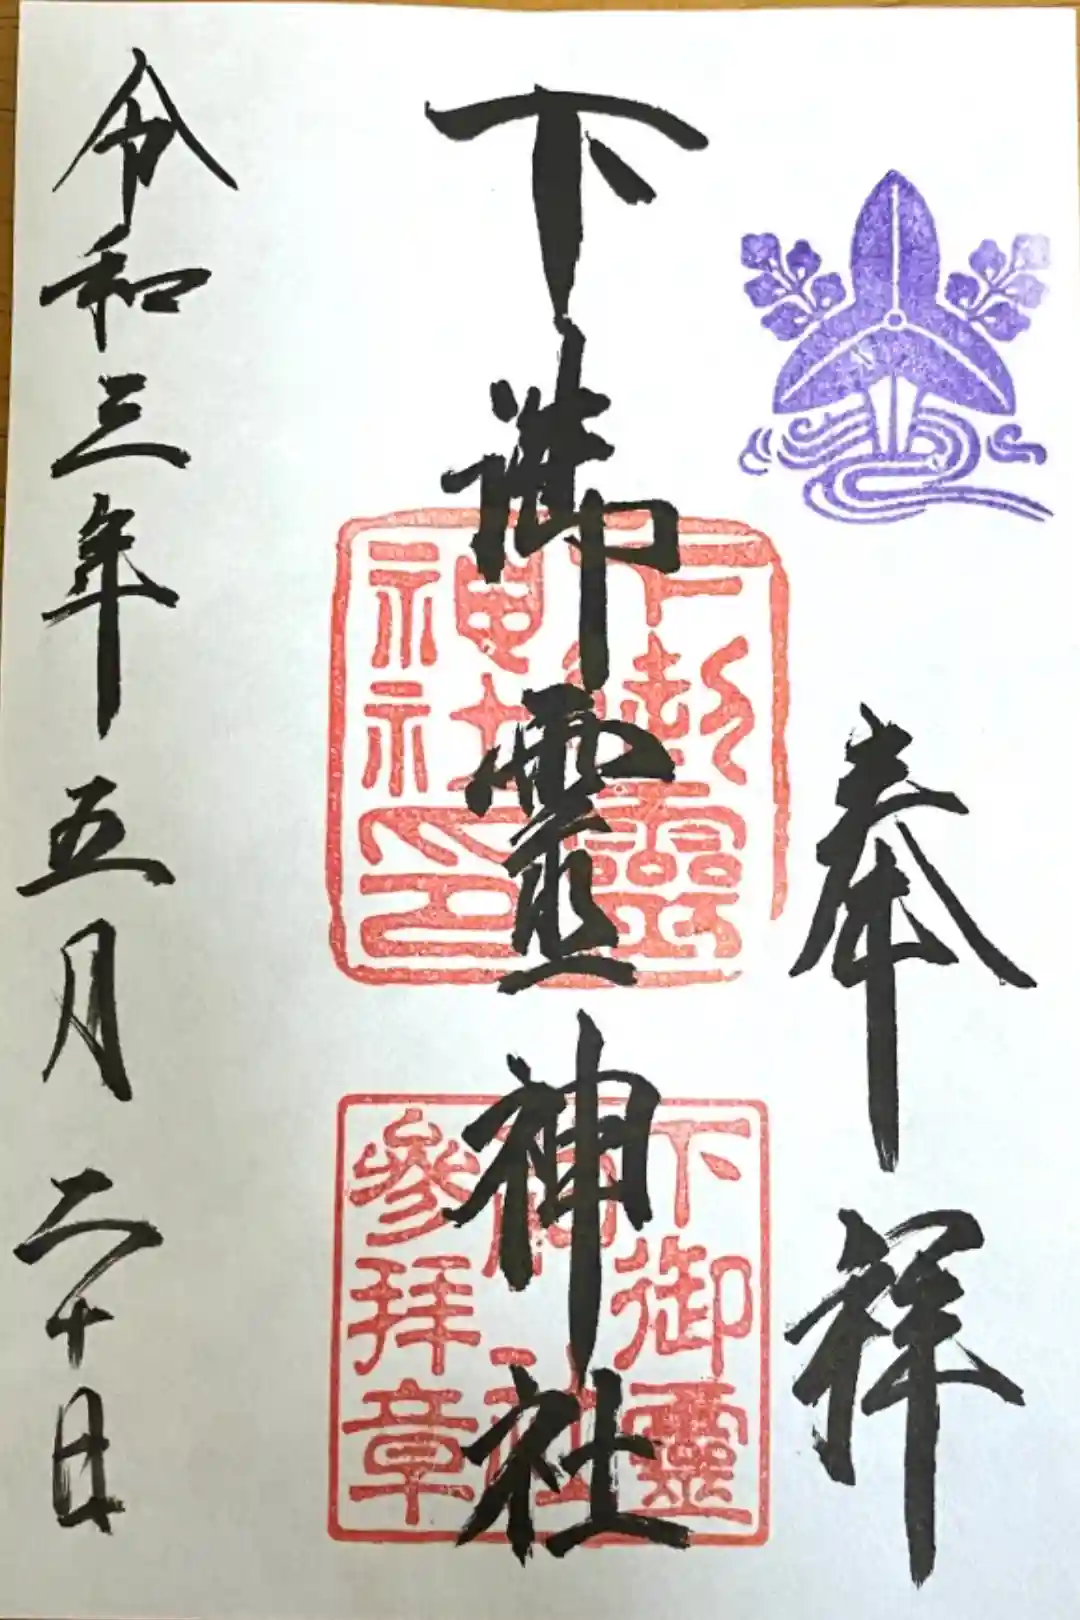 奉拝
下御霊神社
令和三年五月二十日
下御靈
神社印
下御靈
神社
參拝章